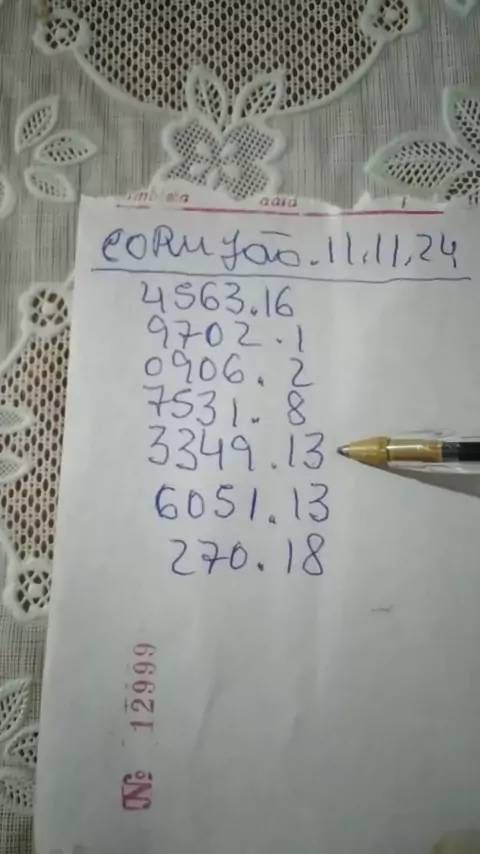 CORUJão.11.11.24
4563.16
9702.1
0906.2
7531.8
3349.13
6051.13
270.18
Nº 12999